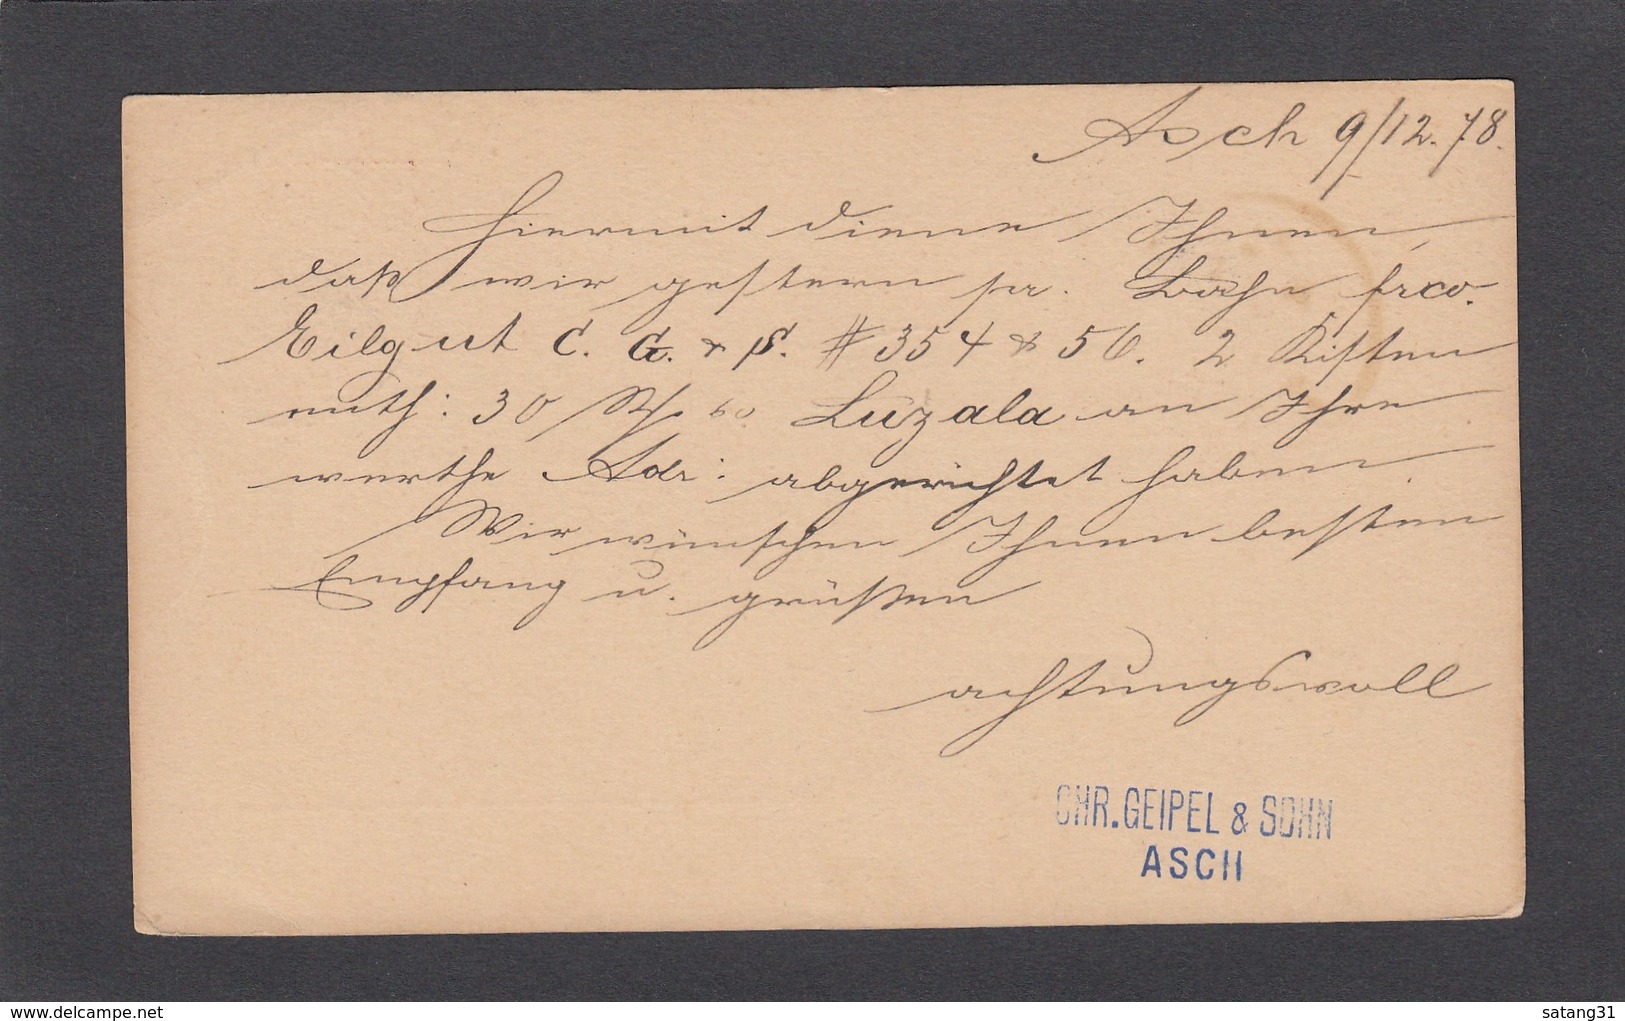 Asch 9/12.78.
Hiermit diene Ihnen,
daß wir gestern pr. Bahn frco.
Eilgut C. G. & S. # 354 & 56. 2 Kisten
enth: 30 60 Luzala an Ihre
werthe Adr: abgerichtet haben.
Wir wünschen Ihnen besten
Empfang u. grüßen
achtungsvoll
CHR. GEIPEL & SOHN
ASCH
delcampe.net
satang31